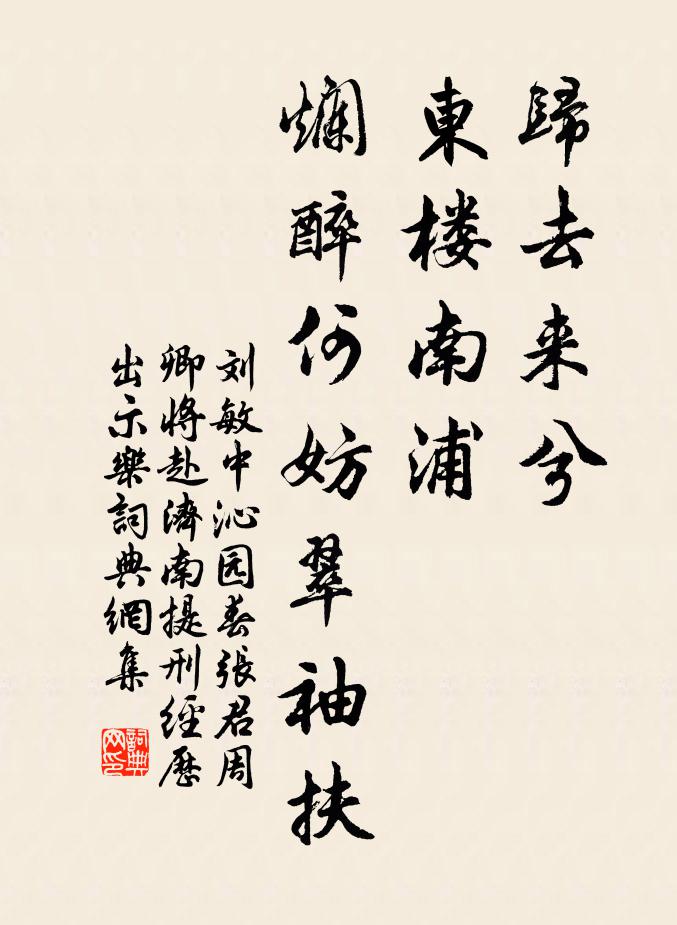 歸去来兮
東楼南浦
爛醉何妨翠袖扶
刘敏中沁园春張君周
卿将赴濟南提刑經歷
出示樂詞典網集
詞典
网印